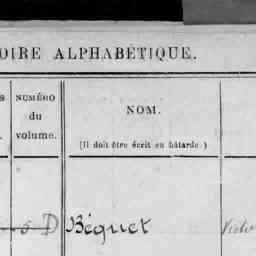 OIRE ALPHABÉTIQUE.
NUMÉRO
du
volume.
NOM.
(Il doit être écrit en bâtarde.)
5 D Béquet Victo